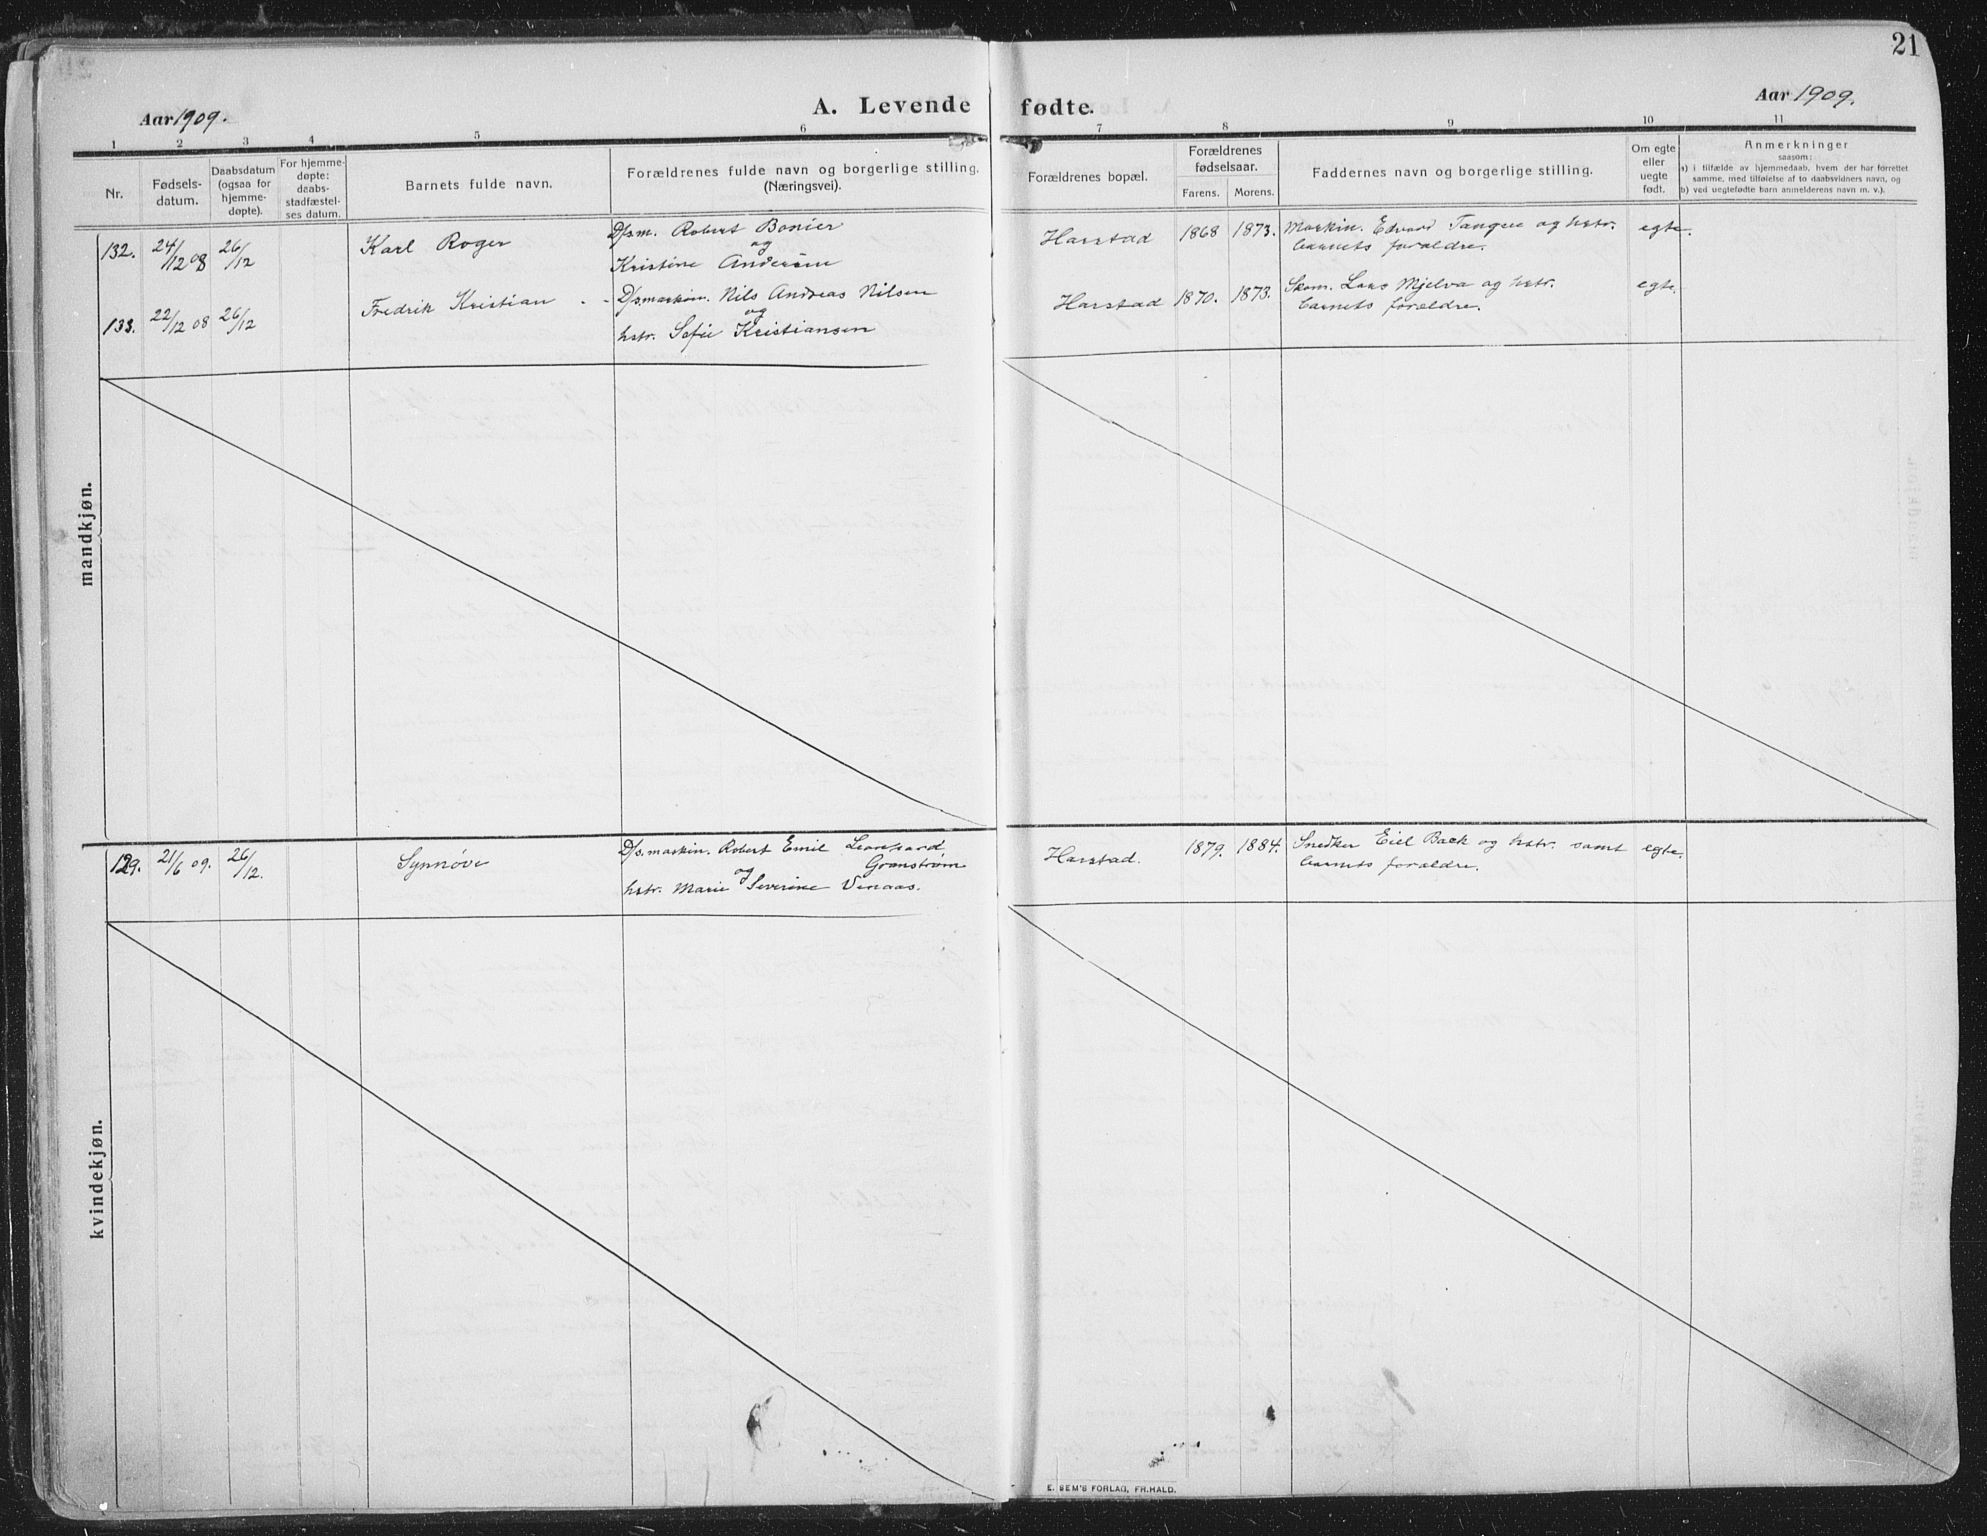 21
Aar 1909.
A. Levende fødte.
Aar 1909.
1 2 3 4 5 6 7 8 9 10 11
Nr.
Fødsels-
datum.
Daabsdatum
(ogsaa for
hjemme-
døpte).
For hjemme-
døpte:
daabs-
stadfæstel-
ses datum.
Barnets fulde navn.
Forældrenes fulde navn og borgerlige stilling.
(Næringsvei).
Forældrenes bopæl.
Forældrenes
fødselsaar.
Farens. Morens.
Faddernes navn og borgerlige stilling.
Om egte
eller
uegte
født.
Anmerkninger
saasom:
a) i tilfælde av hjemmedaab, hvem der har forrettet
samme, med tilføielse af to daabsvidners navn, og
b) ved uegtefødte barn anmelderens navn m. v.).
mandkjøn.
132. 24/12 08 26/12 Karl Roger D/s.m. Robert Bonier
og
Kristine Andersen
Harstad 1868 1873. Maskin. Edvard Tangen og hstr.
barnets forældre. egte.
133. 22/12 08 26/12 Fredrik Kristian D/s.maskin. Nils Andreas Nilsen
og
hstr. Sofie Kristiansen
Harstad 1870. 1873. Skom. Lars Mjelva og hstr.
barnets forældre. egte.
kvindekjøn.
129. 21/6 09. 26/12. Synnøve D/s.maskin. Robert Emil Leonhard
Granstrøm
og
hstr. Marie Severine Venaas.
Harstad. 1879. 1884. Snedker Eiel Back og hstr. samt
barnets forældre. egte.
E. SEM'S FORLAG, FR.HALD.